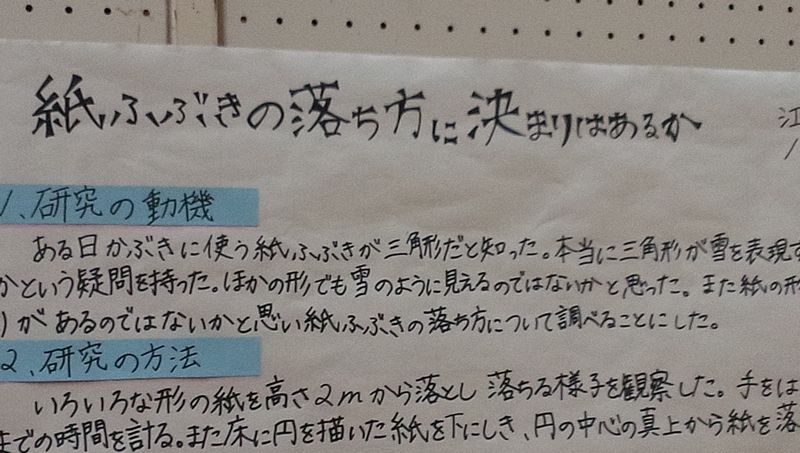 紙ふぶきの落ち方に決まりはあるか
江
1、研究の動機
ある日かぶきに使う紙ふぶきが三角形だと知った。本当に三角形が雪を表現す
かという疑問を持った。ほかの形でも雪のように見えるのではないかと思った。また紙の形
)があるのではないかと思い紙ふぶきの落ち方について調べることにした。
2、研究の方法
いろいろな形の紙を高さ2mから落とし落ちる様子を観察した。手をは
までの時間を計る。また床に円を描いた紙を下にしき、円の中心の真上から紙を落